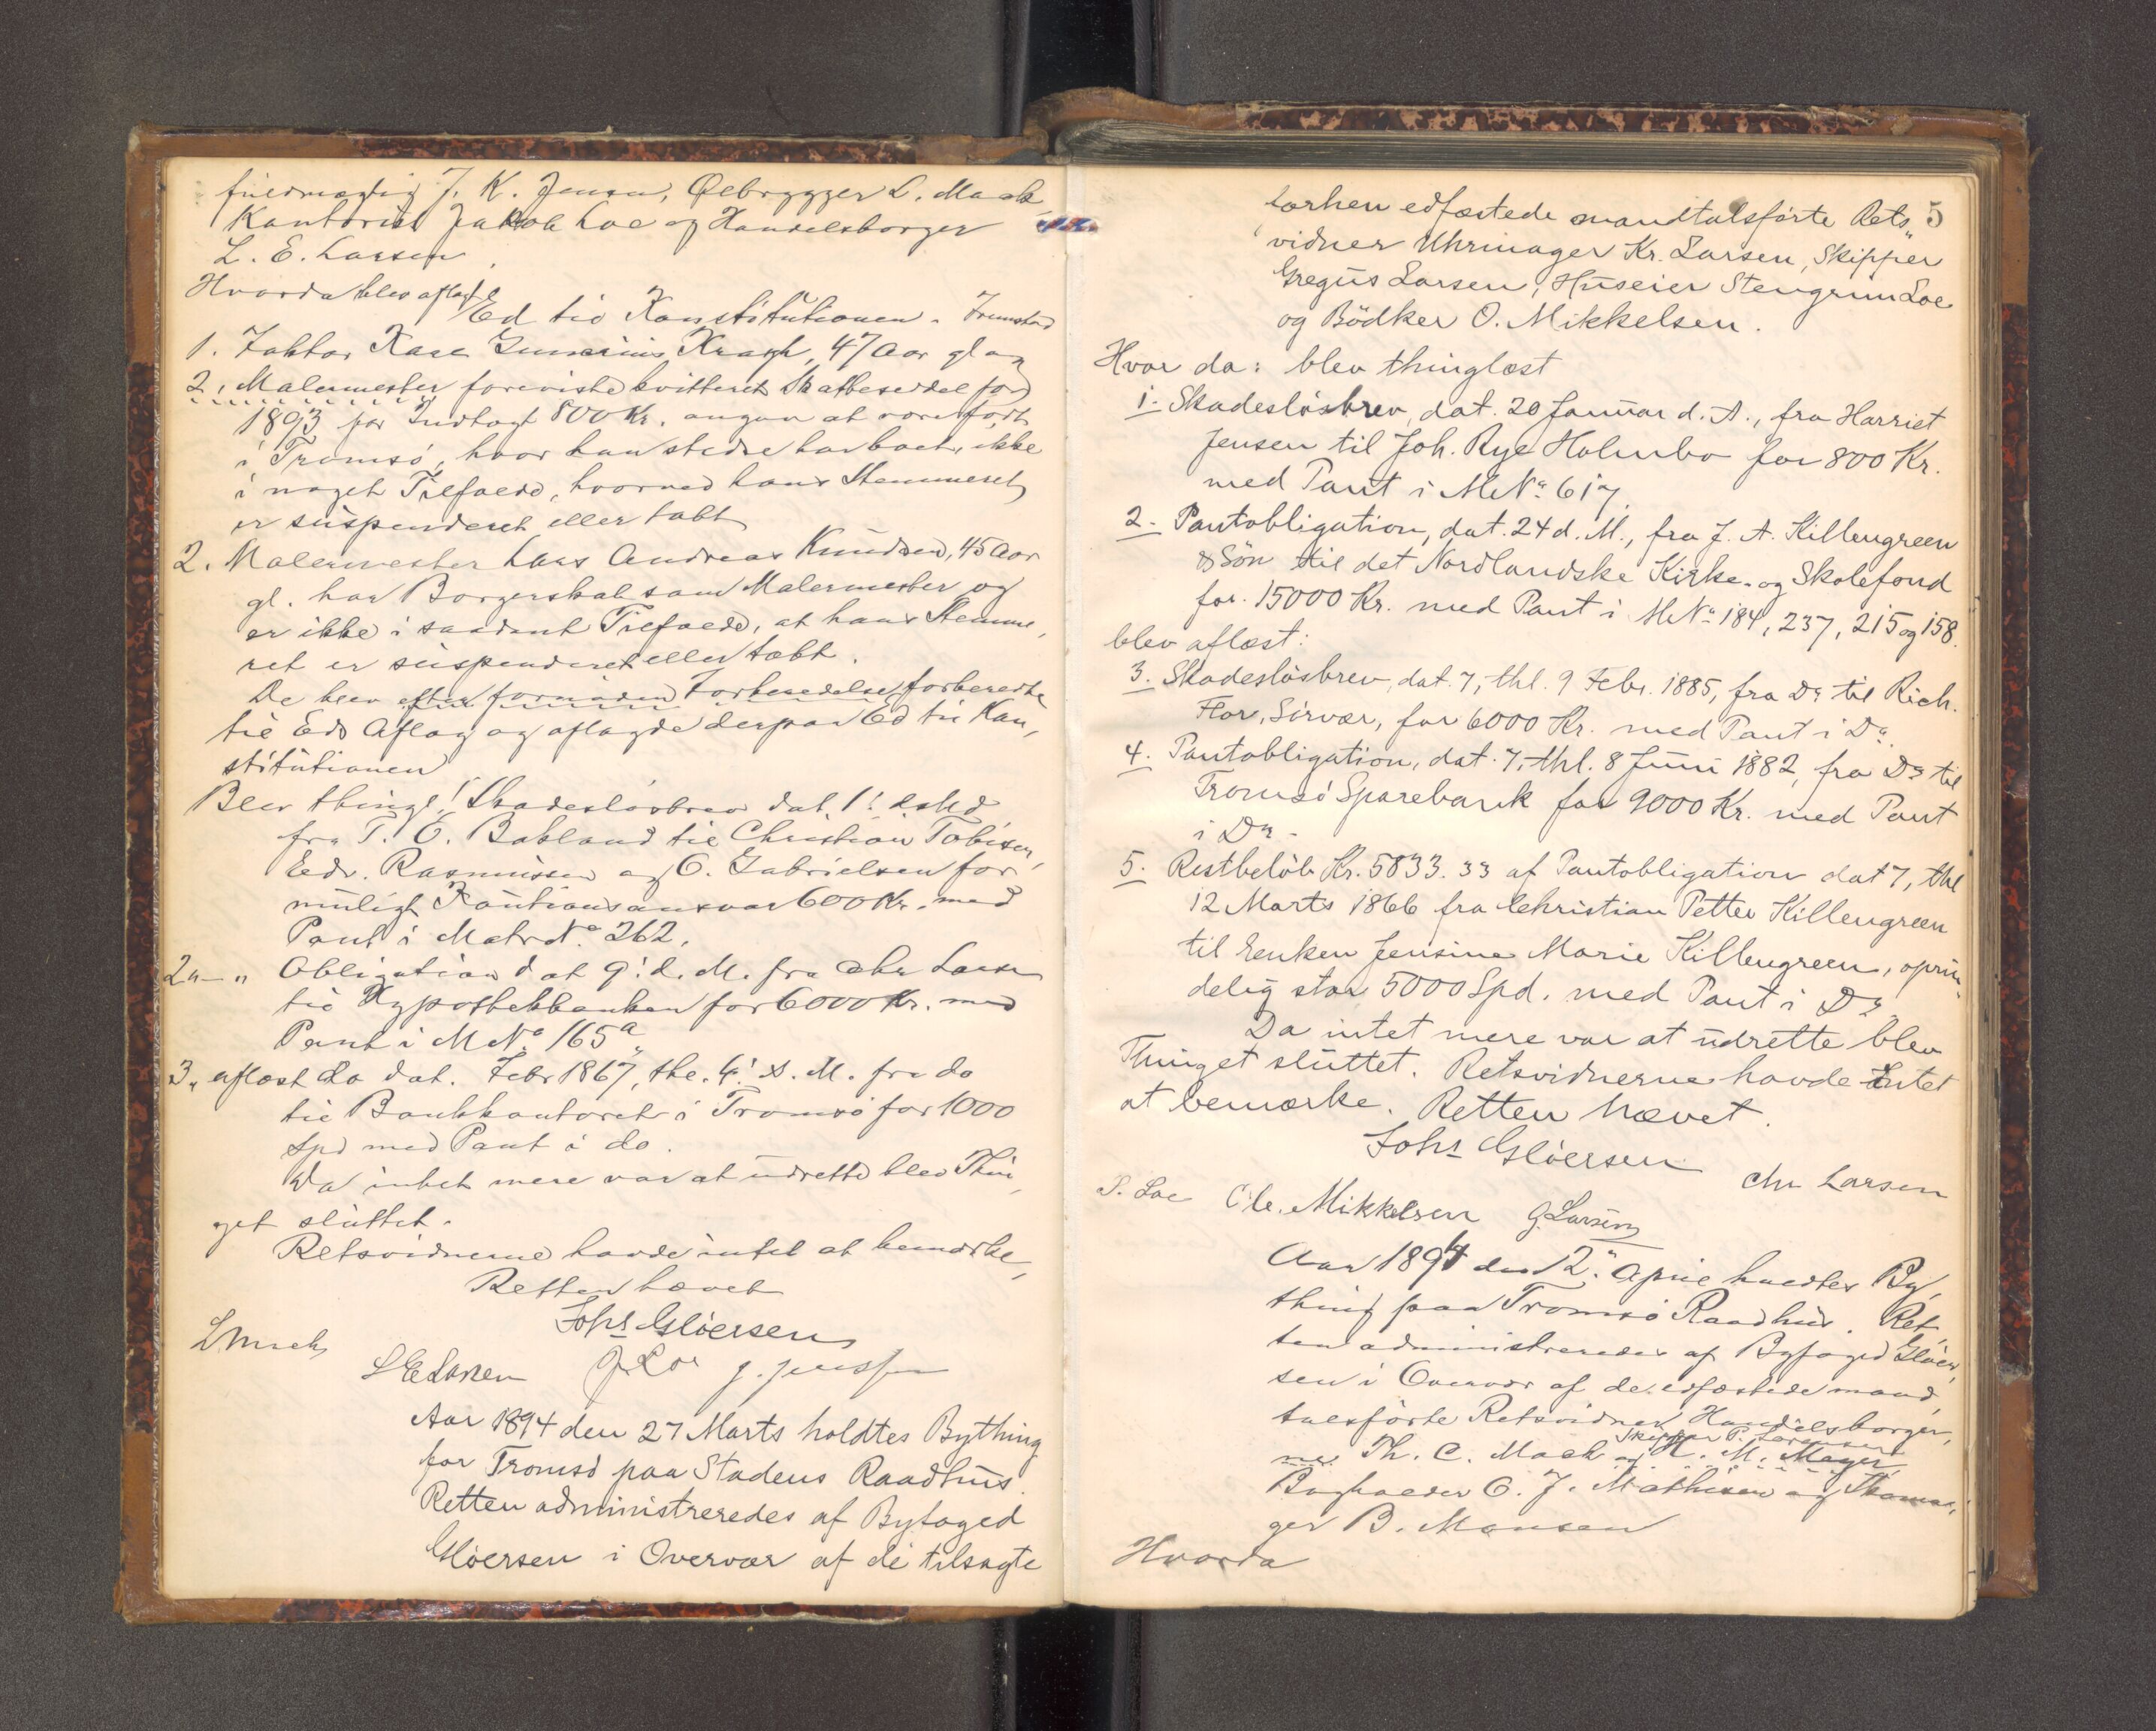 fuldmægtig J. K. Jensen, Ølbrygger L. Mack
Kontorist Jakob Loe og Handelsborger
L. E. Larsen
Hvorda blev aflagt
Ed til Konstitutionen.
1. Faktor Kragh, 47 Aar gl og
2, Malermester foreviste kvitteret Skatteseddel for
1893 for Indtægt 800 Kr. angav at være født
i Tromsø, hvor han stedse har boet, ikke
i noget Tilfælde, hvorved hans Stemmeret
er suspenderet eller tabt
2. Malermester Lars Andreas Knudsen, 45 Aar
gl. har Borgerskab som Malermester og
er ikke i saadant Tilfælde, at hans Stemme,
ret er suspenderet eller tabt.
De blev efter fornøden Forberedelse forberedte
til Eds Aflæg og aflagde derpaa Ed til Kon,
stitutionen
Blev thingl! Skadesløsbrev dat 1!
fra P. O. Bakland til Christian Tobisen,
Edv. Rasmussen og O. Gabrielsen for
muligt Kautionsansvar 600 Kr. med
Pant i Matr Nº 262.
2 " — " Obligation dat 9! d. M. fra Chr Larsen
til Hypothekbanken for 6000 Kr. med
Pant i M Nº 165a
3, aflæst do dat. Febr 1867, thl. 4! s. M. fra do
til Bankkontoret i Tromsø for 1000
Spd med Pant i do.
Da intet mere var at udrette blev Thin,
get sluttet.
Retsvidnerne havde intet at bemærke,
Retten hævet
Johs Gløersen
L Mack
L E Larsen J Loe J. Jenssen
Aar 1894 den 27 Marts holdtes Bything
for Tromsø paa Stadens Raadhus.
Retten administreredes af Byfoged
Gløersen i Overvær af de tilsagte
5
forhen edfæstede mandtalsførte Rets„
vidner Uhrmager Kr. Larsen, Skipper
Gregus Larsen, Huseier Stengrim Loe
og Bödker O. Mikkelsen.
Hvor da: blev thinglæst
1. Skadesløsbrev, dat. 20 Januar d. A., fra Harriet
Jensen til Joh. Rye Holmbo for 800 Kr.
med Pant i M Nº 617.
2. Pantobligation, dat. 24 d. M., fra J. A. Killengreen
& Søn til det Nordlandske Kirke- og Skolefond
for 15000 Kr. med Pant i M Nº 184, 237, 215 og 158.
blev aflæst:
3. Skadesløsbrev, dat. 7, thl. 9 Febr. 1885, fra Do til Rich.
Flor, Sirvær, for 6000 Kr. med Pant i Do.
4. Pantobligation, dat. 7, thl. 8 Juni 1882, fra Do til
Tromsø Sparebank for 9000 Kr. med Pant
i Do -
5. Restbeløb Kr. 5833.33 af Pantobligation dat 7, thl
12 Marts 1866 fra Christian Petter Killengreen
til Enken Jensine Marie Killengreen, oprin„
delig stor 5000 Spd. med Pant i Do
Da intet mere var at udrette blev
Thinget sluttet. Retsvidnerne havde Intet
at bemærke. Retten hævet.
Johs Gløersen
Chr Larsen
S. Loe Ole. Mikkelsen G. Larsen
Aar 1894 den 12. April holdtes By,
thing paa Tromsø Raadhus. Ret,
ten administreredes af Byfoged Gløer,
sen i Overvær af de edfæstede mand,
talsførte Retsvidner Handelsborger,
Skipper P. Sørensen
ne Th. C. Mack og H. M. Mayer,
Bogholder O. J. Mathisen og Skoma,
ger B. Monsen
Hvorda